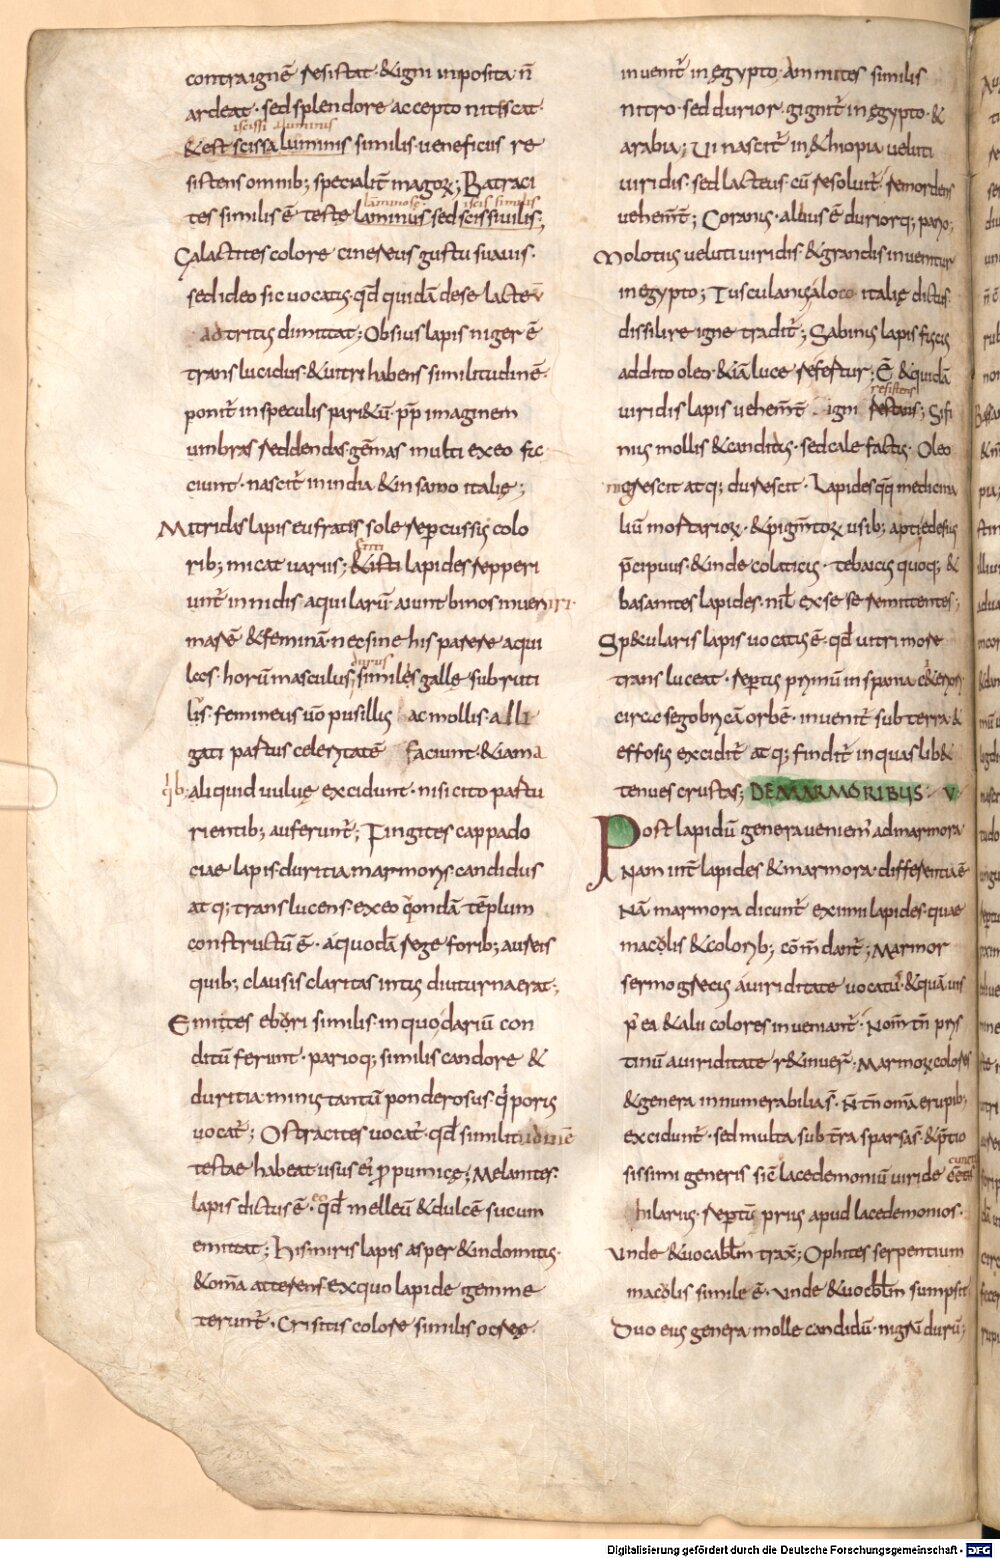 contra ignē resistat · & igni inposita n̄
ardeat · sed splendore accepto nitescat ·
iscissi aluminis
& est scissa luminis similis · veneficus re
sistens omnib; specialit̄ magoꝝ; Batraci
laminose iscis similis
tes similis ē teste laminus · sed scissiuilis;
Galactites colore cinereus gustu suauis ·
sed ideo sic uocatus · qđ quidā de se lacteū
ad tritus dimittat; Obsius lapis niger ē
translucidus · & uitri habens similitudinē ·
ponit̄ in speculis parietū · pp̄ imaginem
umbras reddendas · gēmas multi ex eo fa
ciunt · nascit̄ in india & in samo italię;
Mitridas lapis eufratis sole repercussus colo
rib; micat uarius; &isti lapides repperi
unt̄ in nidis aquilarū · aiunt binos inueniri
marē & feminā · nec sine his parere aqui
durus
las · horū masculus, similes gallę subruti
lis · femineus uō pusillus ac mollis · alli
gati partus celeritatē faciunt · & iam a
aliquid uuluę excidunt · nisi cito partu
rientib; auferunt̄; Fingites cappado
ciae lapis · duritia marmoris candidus
atq; translucens · ex eo q̄ondā tēplum
constructū ē · a quodā rege forib; aureis
quib; clausis claritas intus diuturna erat;
Emittes ebori similis · in quo dariū con
ditū ferunt · parioq; similis candore &
duritia minus tantū ponderosus · q̄ porus
uocat̄; Ostracites uocat̄ · qđ similitudinē
testae habeat · usus ei' ꝓ pumicę; Melanites ·
eo
lapis dictus ē · qđ melleū & dulcē sucum
emittat; Hismiris lapis asper & indomitus ·
& om̄a atterens · ex quo lapide gemme
terunt̄ · Crisitis colore similis ocreę ·
inuenit̄ in ęgypto · Ammites similis
nitro · sed durior · gignit̄ in ęgypto · &
arabia; Ui nascit̄ in &hiopia ueluti
uiridis · sed lacteus · cū resoluit̄ · remordens
uehem̄t; Coranus · albus ē durior q; pario;
Molotius ueluti uiridis · & grandis inuenitur
in egypto; Tusculanus a loco italię dictus
dissilire igne tradit̄; Sabinus lapis fuscus
addito oleo · & iā luce refertur; Ē & quidā
resistens
uiridis lapis uehem̄t igni restans; Sifi
nius mollis & canditus · sed calefactus · Oleo
nigrescit atq; durescit · Lapides q̄q medicina
liū mortarioꝝ · & pigm̄toꝝ usib; apti · &esius
p̄cipuus · & inde colaticus · tebaicus quoq; &
basanites lapides · nil̄ ex se se remittentes;
Sp&ularis lapis uocatus ē · qđ uitri more
transluceat · repertus primū in spania
circa segobricā orbē · inuenit̄ sub terra &
effosus excidit̄ atq; findit̄ in quas lib&
tenues crustas; DE MARMORIBUS · V
Post lapidū genera ueniem' ad marmora
Nam int̄ lapides & marmora · differentia ē
Nā marmora dicunt̄ eximii lapides · quae
macolis & colorib; cōm̄dant̄; Marmor
sermo grecus a uiriditate uocatū · & quā uis
p' ea & alii colores inueniant̄ · Nom̄ tn̄ pris
tinū a uiriditate r&inuer̄; Marmoꝝ colores
& genera innumerabilia s̄ · N̄ tn̄ om̄a e rupib;
excidunt̄ · sed multa sub t̄ra sparsa s̄ · & p̄tio
sissimi generis · siē lacedemoniū uiride
hilarius · repertū prius apud lacedemonios ·
Unde & uocabl̄m trax̄; Ophites serpentium
macolis simile ē · unde & uocbl̄m sumpsit
Duo eius genera · molle candidū · nigrū durū;
Digitalisierung gefördert durch die Deutsche Forschungsgemeinschaft - DFG